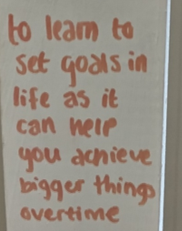 to learn to
set goals in
life as it
can help
you achieve
bigger things
overtime